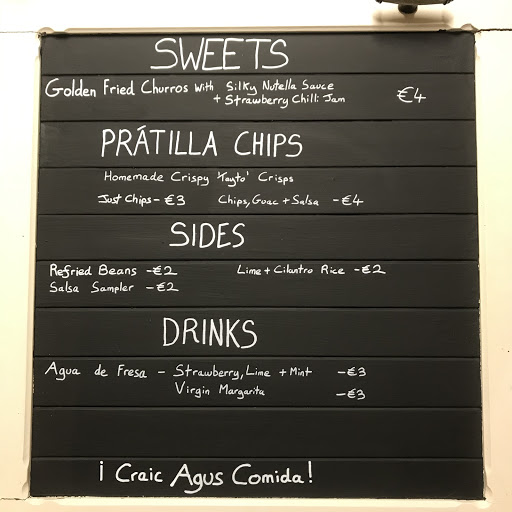 SWEETS
Golden Fried Churros with Silky Nutella Sauce €4
+ Strawberry Chilli Jam
PRÁTILLA CHIPS
Homemade Crispy 'Tayto' Crisps
Just Chips - €3 Chips, Guac + Salsa - €4
SIDES
Refried Beans - €2 Lime + Cilantro Rice - €2
Salsa Sampler - €2
DRINKS
Agua de Fresa - Strawberry, Lime + Mint - €3
Virgin Margarita - €3
¡ Craic Agus Comida!